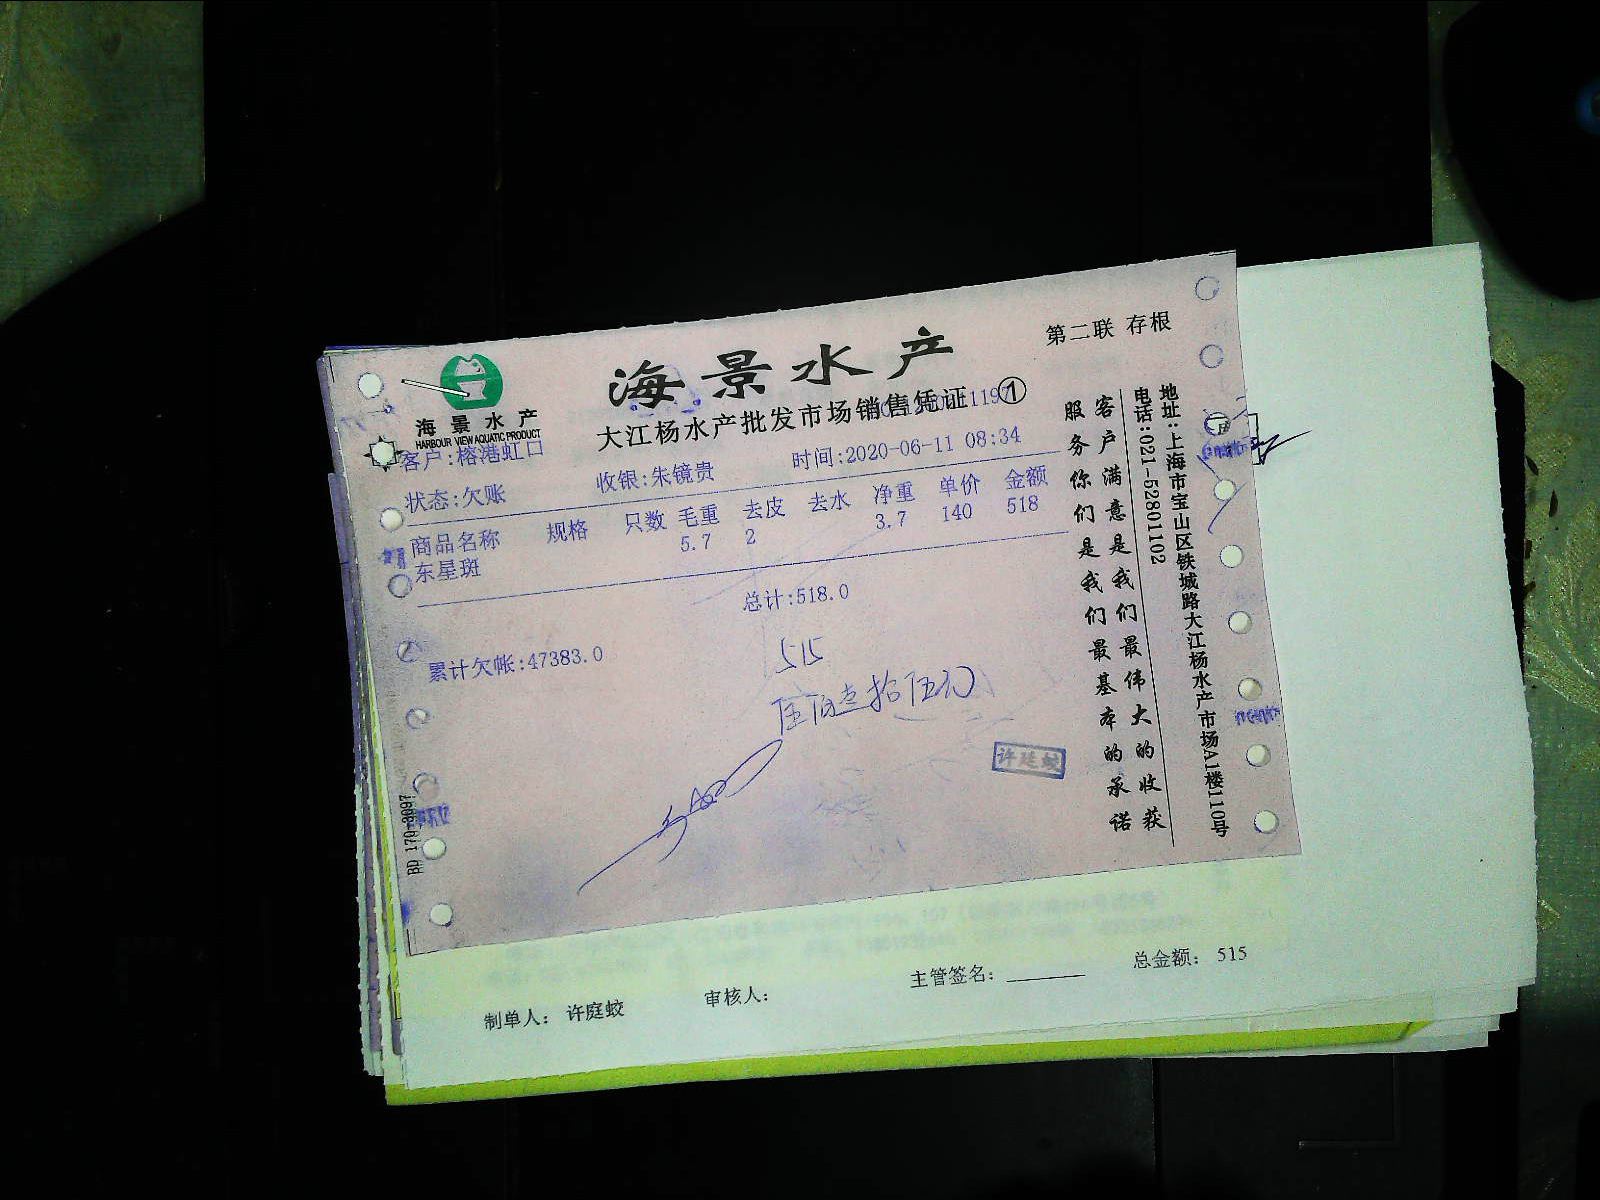 第二联 存根
海景水产
海景水产
HARBOUR VIEW AQUATIC PRODUCT
大江杨水产批发市场销售凭证 ①
客户:榕港虹口
状态:欠账 收银:朱镜贵 时间:2020-06-11 08:34
商品名称 规格 只数 毛重 去皮 去水 净重 单价 金额
东星斑 5.7 2 3.7 140 518
总计:518.0
累计欠帐:47383.0
515
伍佰壹拾伍元
许廷蛟
客户满意是我们最伟大的收获
服务你们是我们最基本的承诺
地址:上海市宝山区铁城路大江杨水产市场A1楼110号
电话:021-52801102
制单人: 许庭蛟 审核人: 主管签名: 总金额: 515